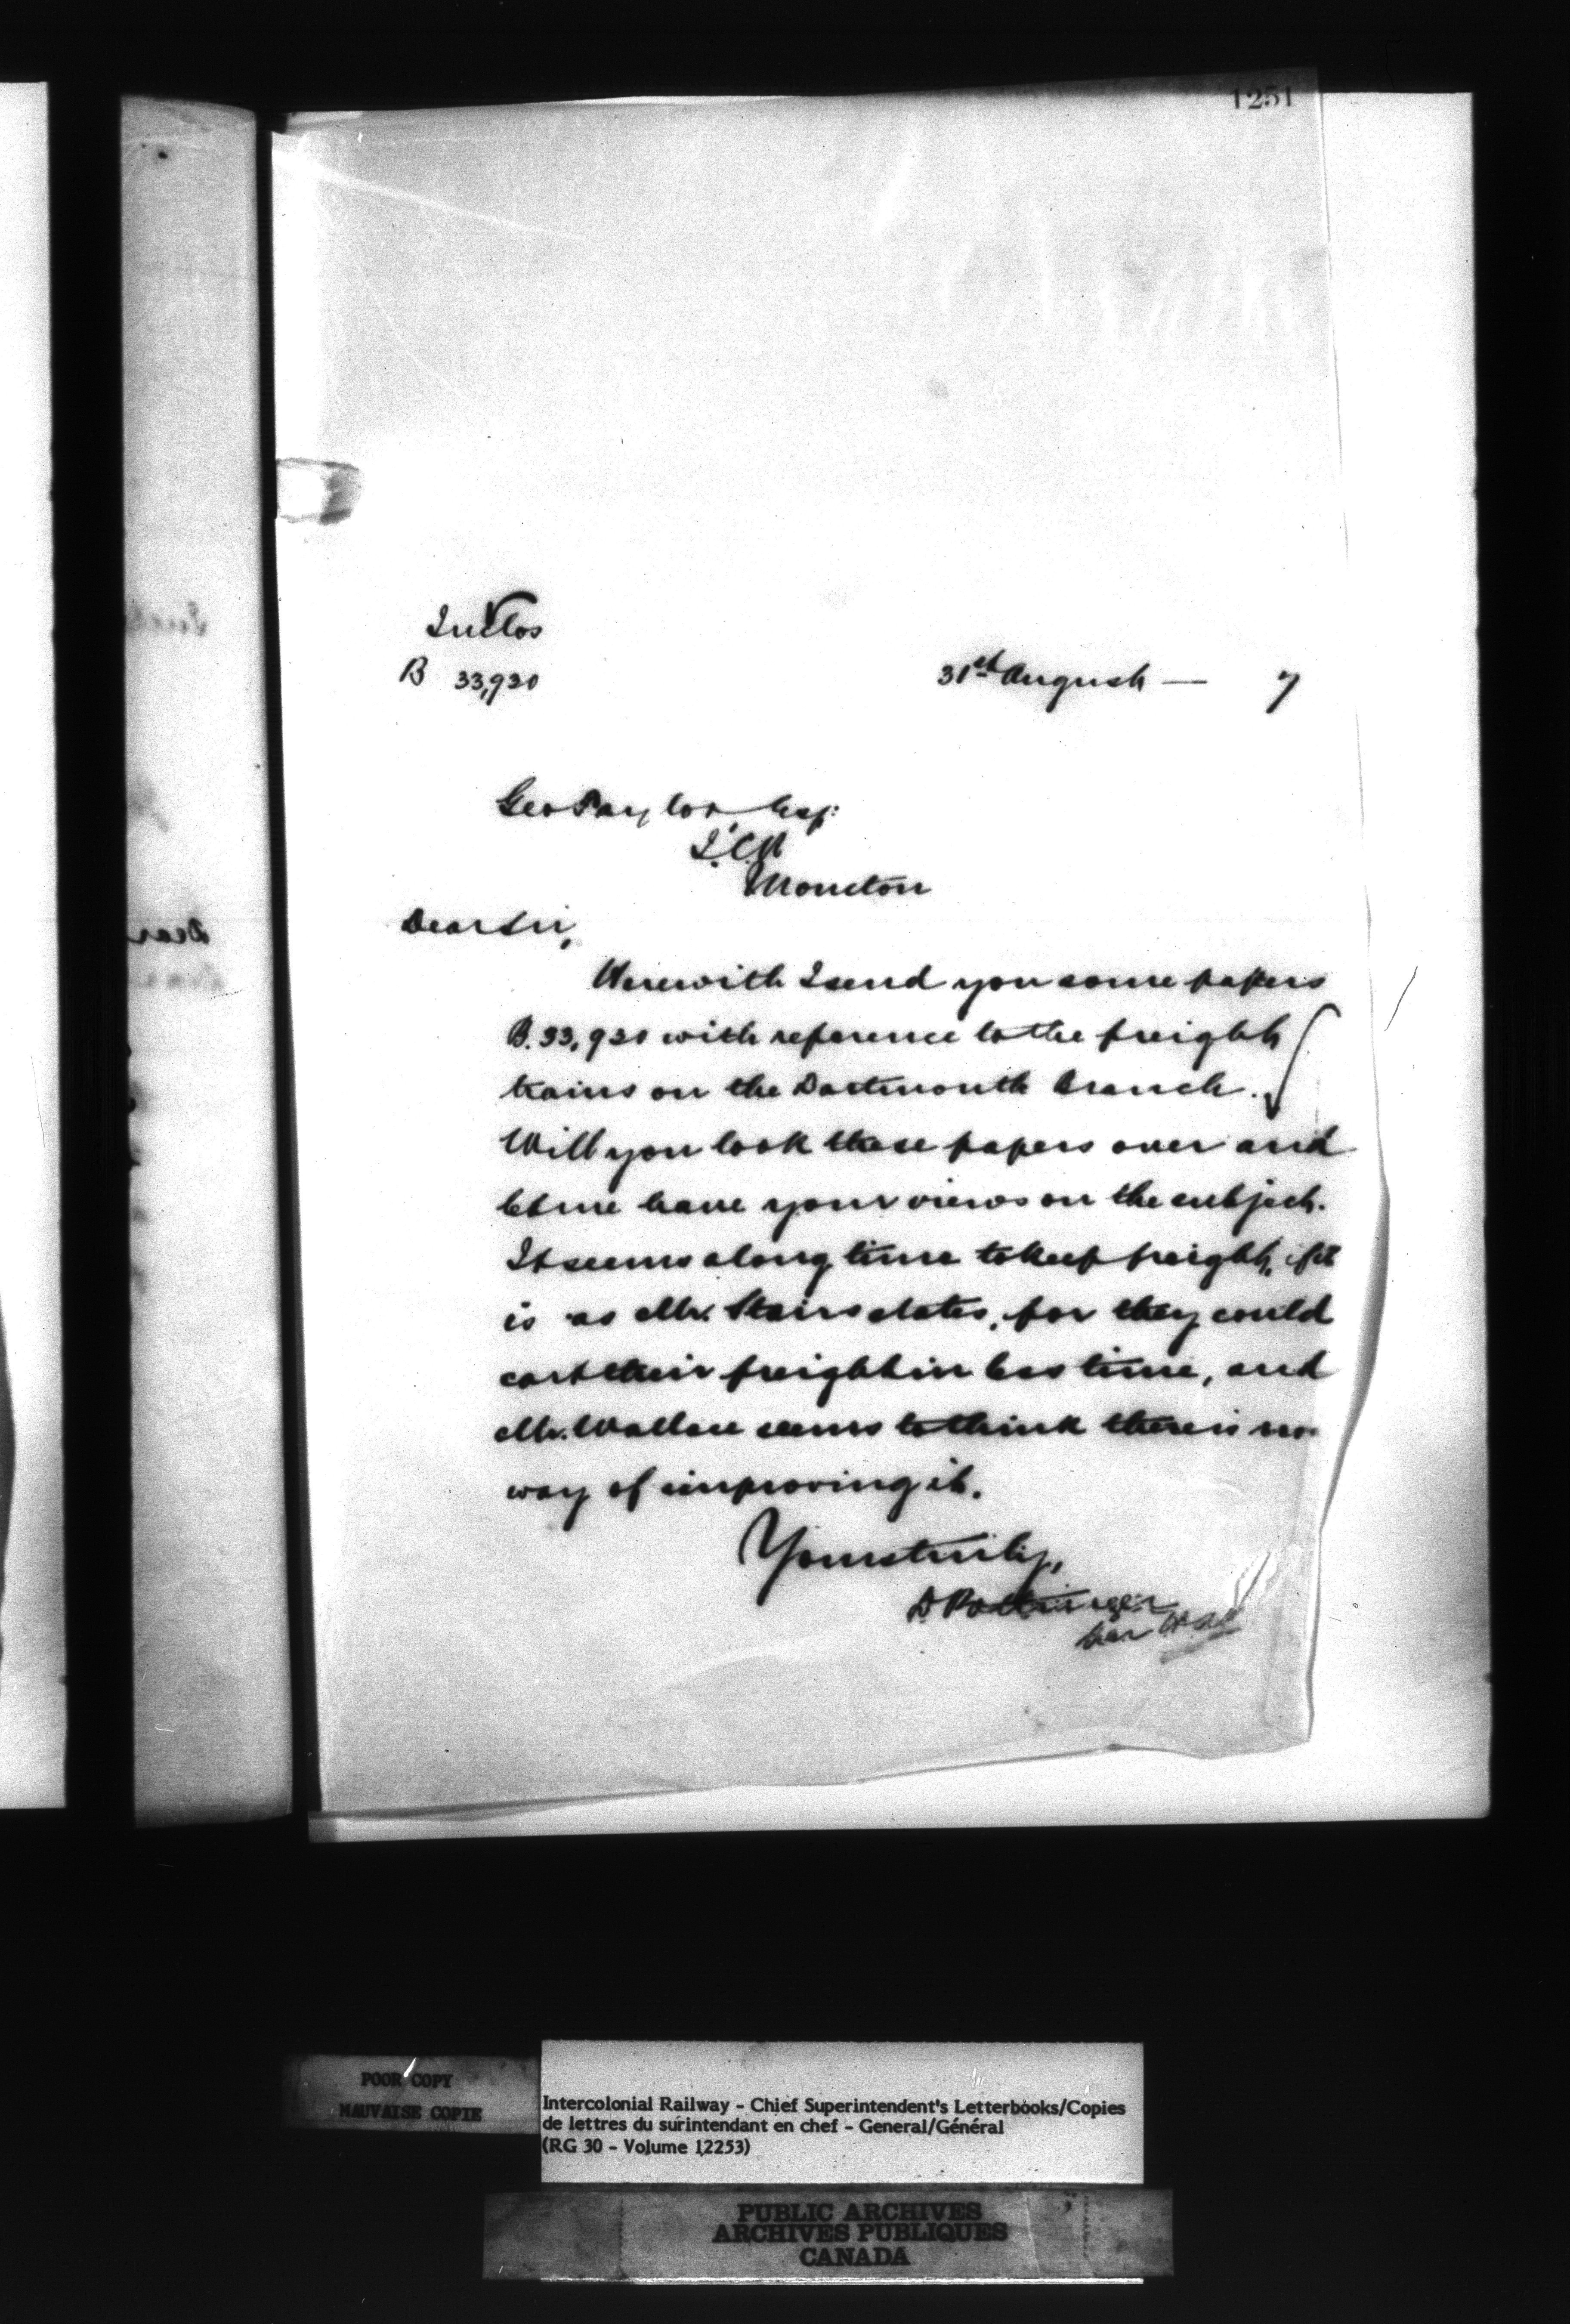 1251
Inclos
B 33,920
31st August — 7
Geo Taylor, Esq:
I.C.R
Moncton
Dear Sir,
Herewith I send you some papers
B. 33,920 with reference to the freight
trains on the Dartmouth Branch.
Will you look these papers over and
let me have your views on the subject.
It seems a long time to keep freight, if it
is as Mr. Stairs states, for they could
cart their freight in less time, and
Mr. Wallace seems to think there is no
way of improving it.
Yours truly,
D Pottinger
Dear
POOR COPY
MAUVAISE COPIE
Intercolonial Railway - Chief Superintendent's Letterbooks/Copies
de lettres du surintendant en chef - General/Général
(RG 30 - Volume 12253)
PUBLIC ARCHIVES
ARCHIVES PUBLIQUES
CANADA